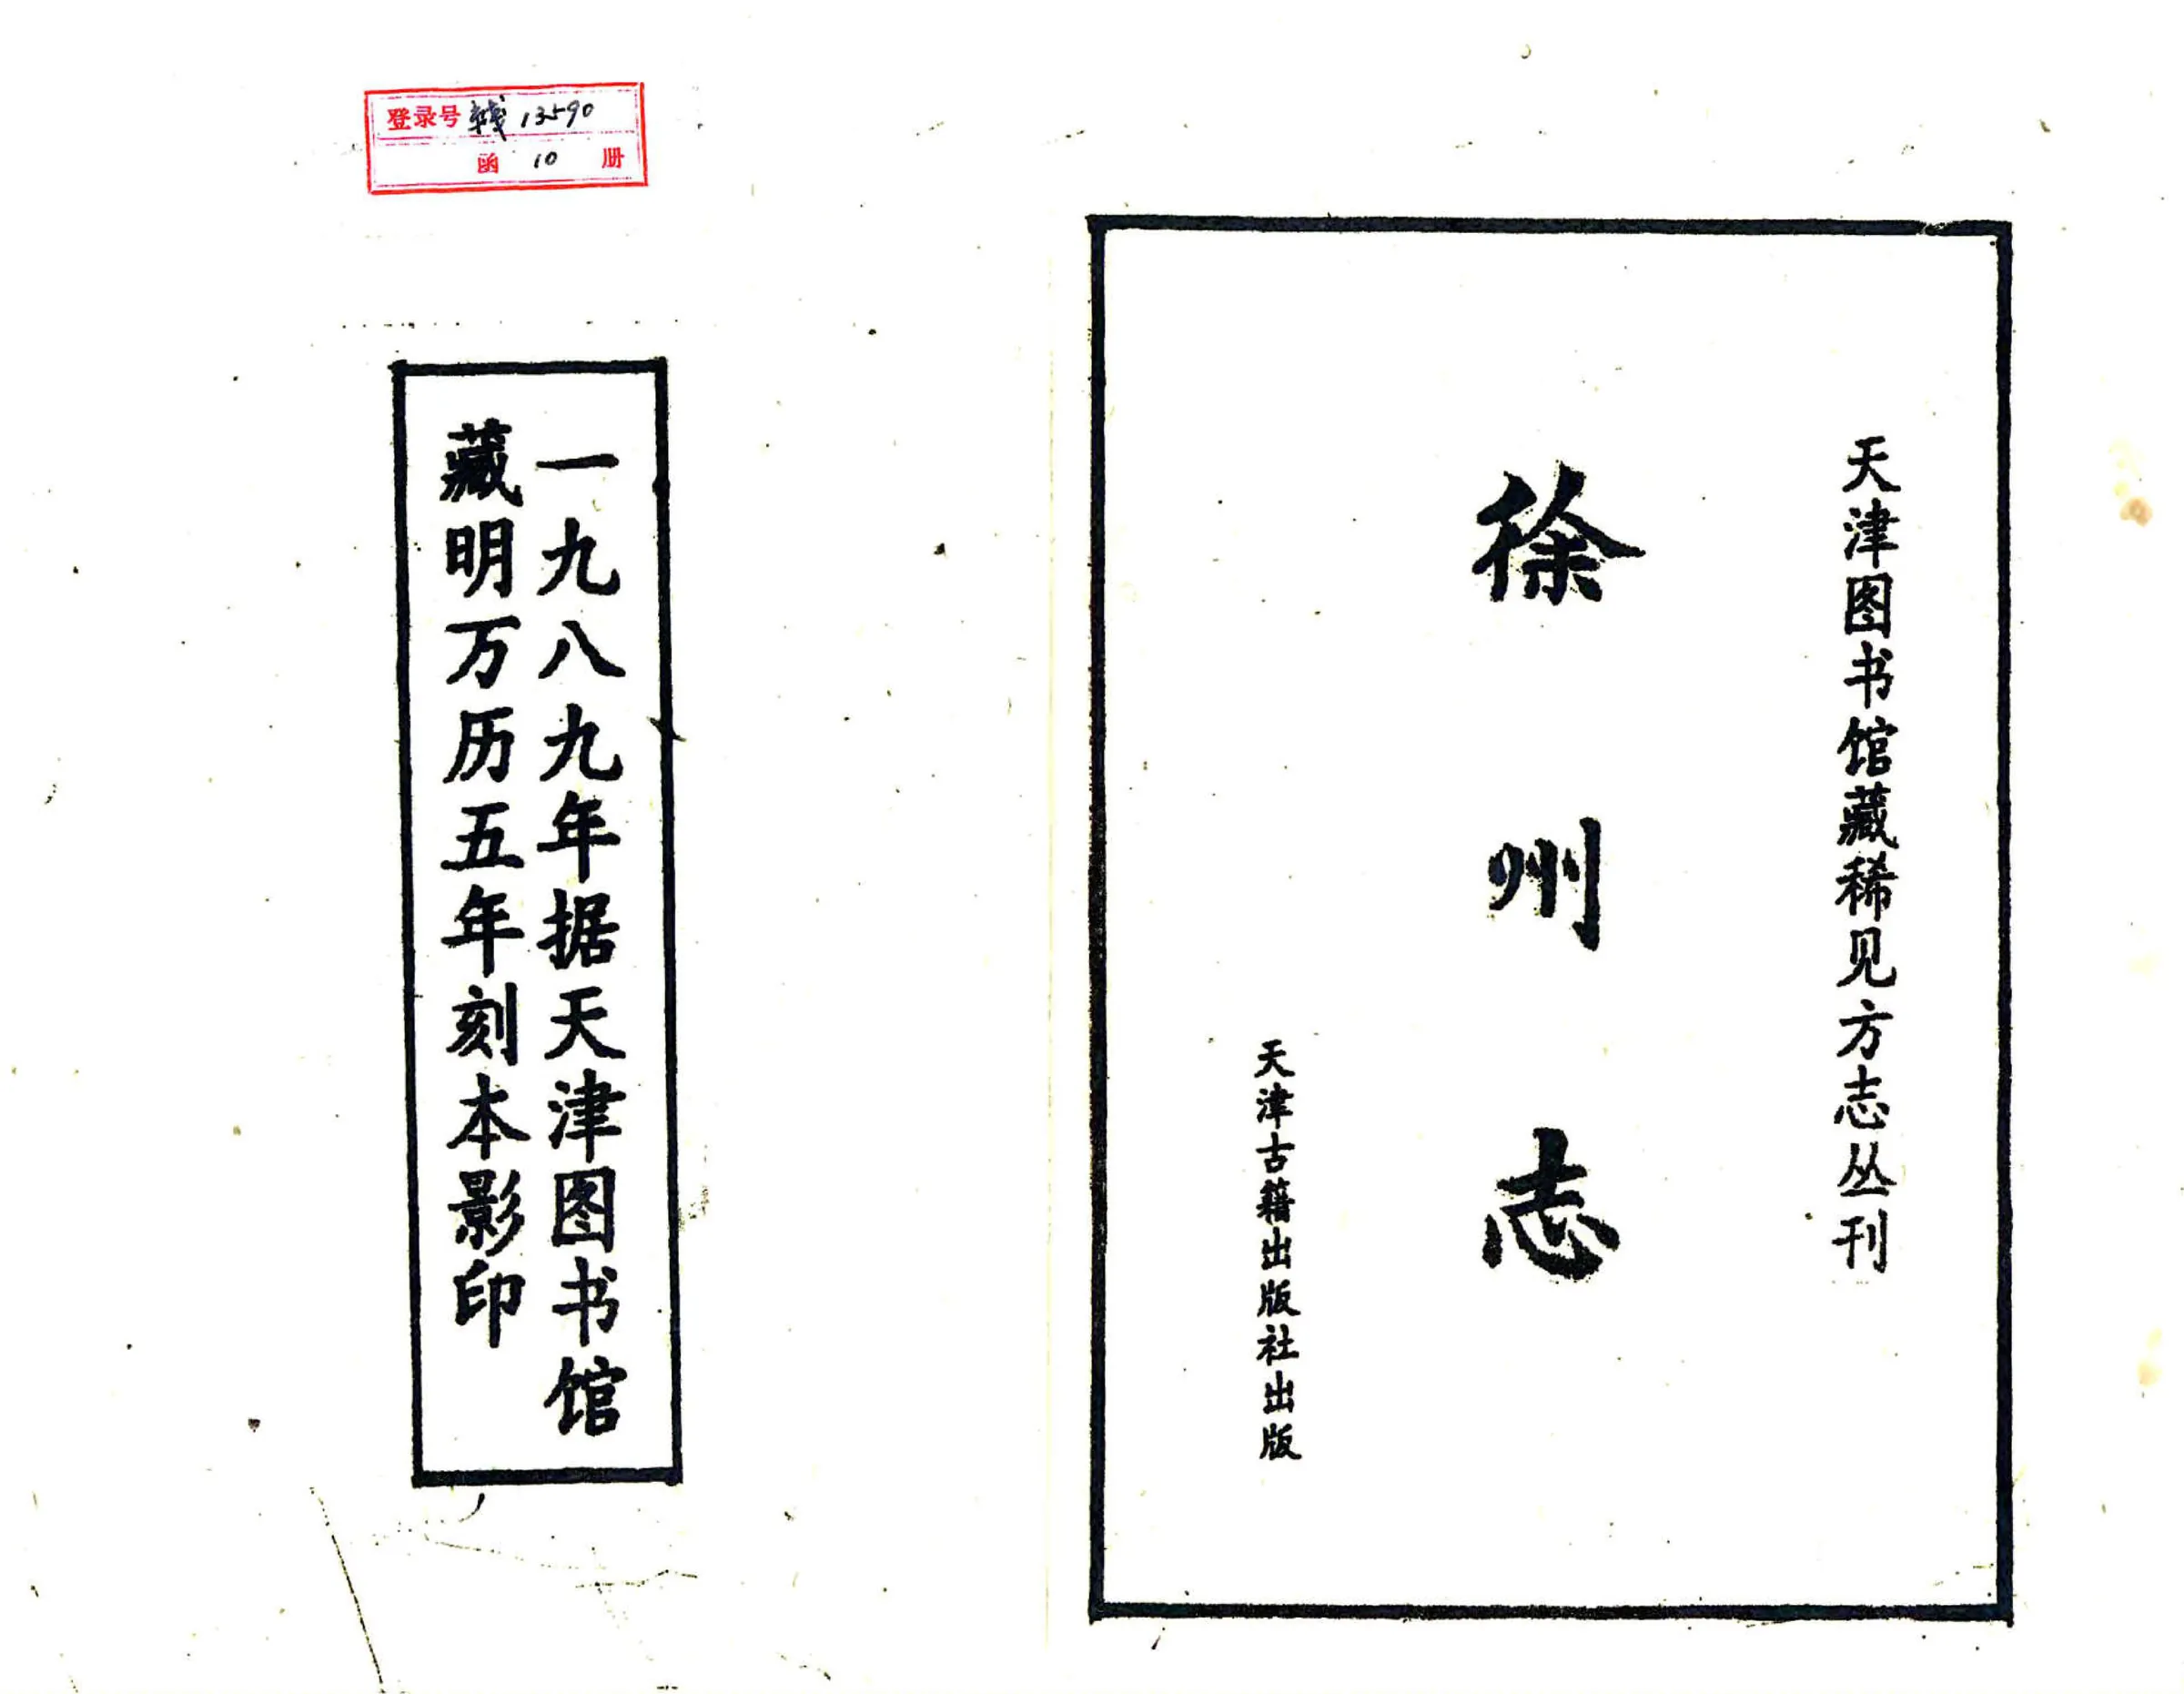 天津图书馆藏稀见方志丛刊
徐州志
天津古籍出版社出版
登录号 13590
函 10 册
一九八九年据天津图书馆
藏明万历五年刻本影印